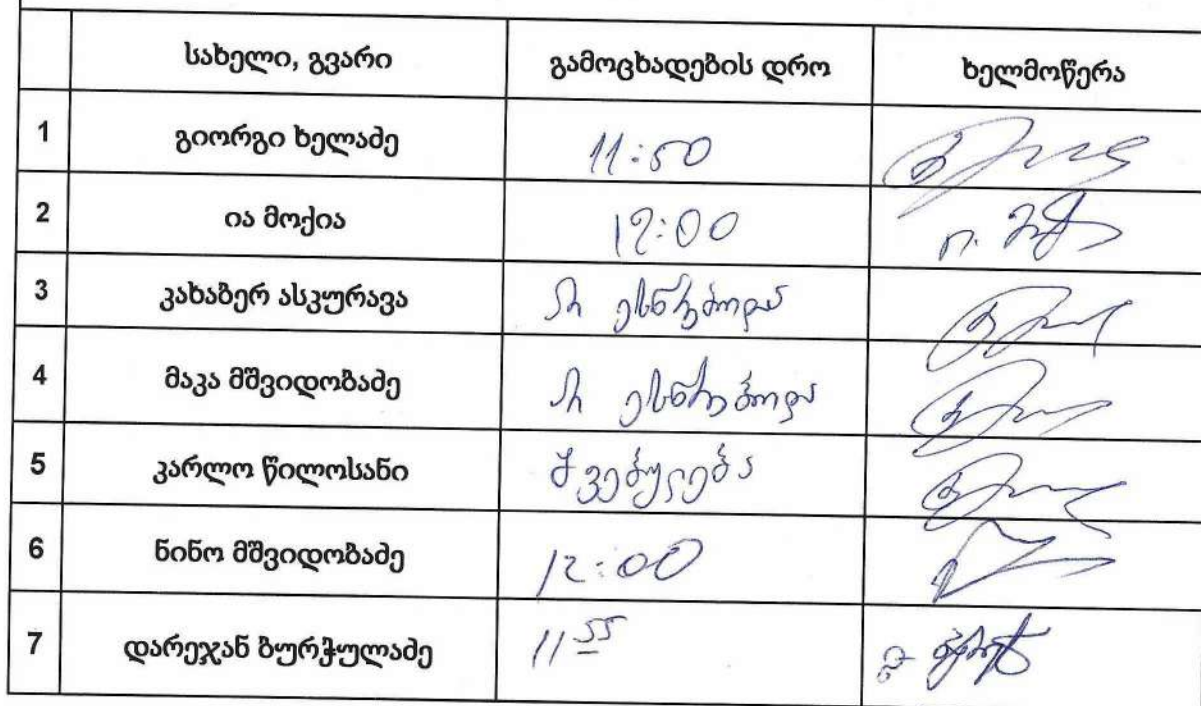 სახელი, გვარი გამოცხადების დრო ხელმოწერა
1 გიორგი ხელაძე 11:50
2 ია მოქია 12:00
3 კახაბერ ასკურავა არ ესწრებოდა
4 მაკა მშვიდობაძე არ ესწრებოდა
5 კარლო წილოსანი შვებულება
6 ნინო მშვიდობაძე 12:00
7 დარეჯან ბურჭულაძე 11 55